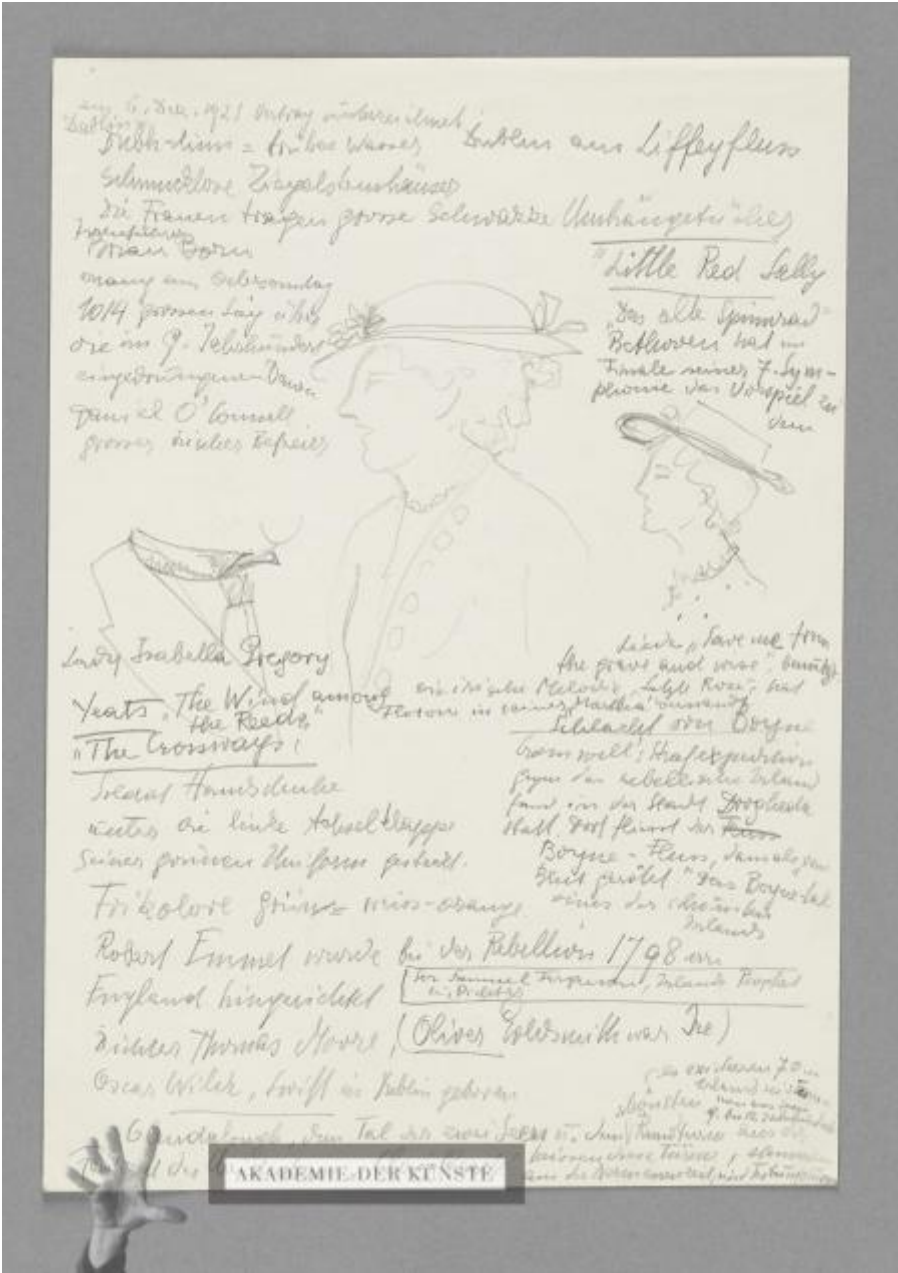 am 6. Dez. 1921 Vertrag unterzeichnet
"Dublin"
Dubh-linn = trübes Wasser Dublin am Liffeyfluss
Schmucklose Ziegelsteinhäuser
Die Frauen tragen grosse schwarze Umhängetücher
Brian Born
errang am Ostersonntag
1014 grossen Sieg über
die im 9. Jahrhundert
eingedrungenen Dänen
Daniel O'Connell
grosser irischer Befreier
"Little Red Lally
"Das alte Spinnrad"
Bethoven hat im
Finale seiner 7. Sym-
phonie das Vorspiel zu
dem
Liede "Save me from
the grave and wise", benützt
Lady Isabella Gregory
Yeats "The Wind among
the Reeds"
"The Crossways"
eine irische Melodie "Letzte Rose", hat
Flotow in seiner "Martha"
Schlacht von Boyne
Cromwell's Strafexpedition
gegen das rebellische Irland
fand in der Stadt Drogheda
statt, dort fliesst der Fluss
Boyne-Fluss, damals von
Blut gerötet." Das Boyne-tal
eines der schönsten
Irlands
Soldat Handschuhe
unter die linke Achselklappe
seiner grünen Uniform gesteckt.
Trikolore grün-weiss-orange
Robert Emmet wurde bei der Rebellion 1798 von
England hingerichtet
Sir Samuel Ferguson, Irlands Prophet
ein Dichter
Dichter Thomas Moore, (Oliver Goldsmith war Ire)
Oscar Wilde, Swift in Dublin geboren
es existieren 70 in
Irland
schönsten
9. bis 12. Jahrhundert
Glendalough, dem Tal der zwei Seen
AKADEMIE DER KÜNSTE